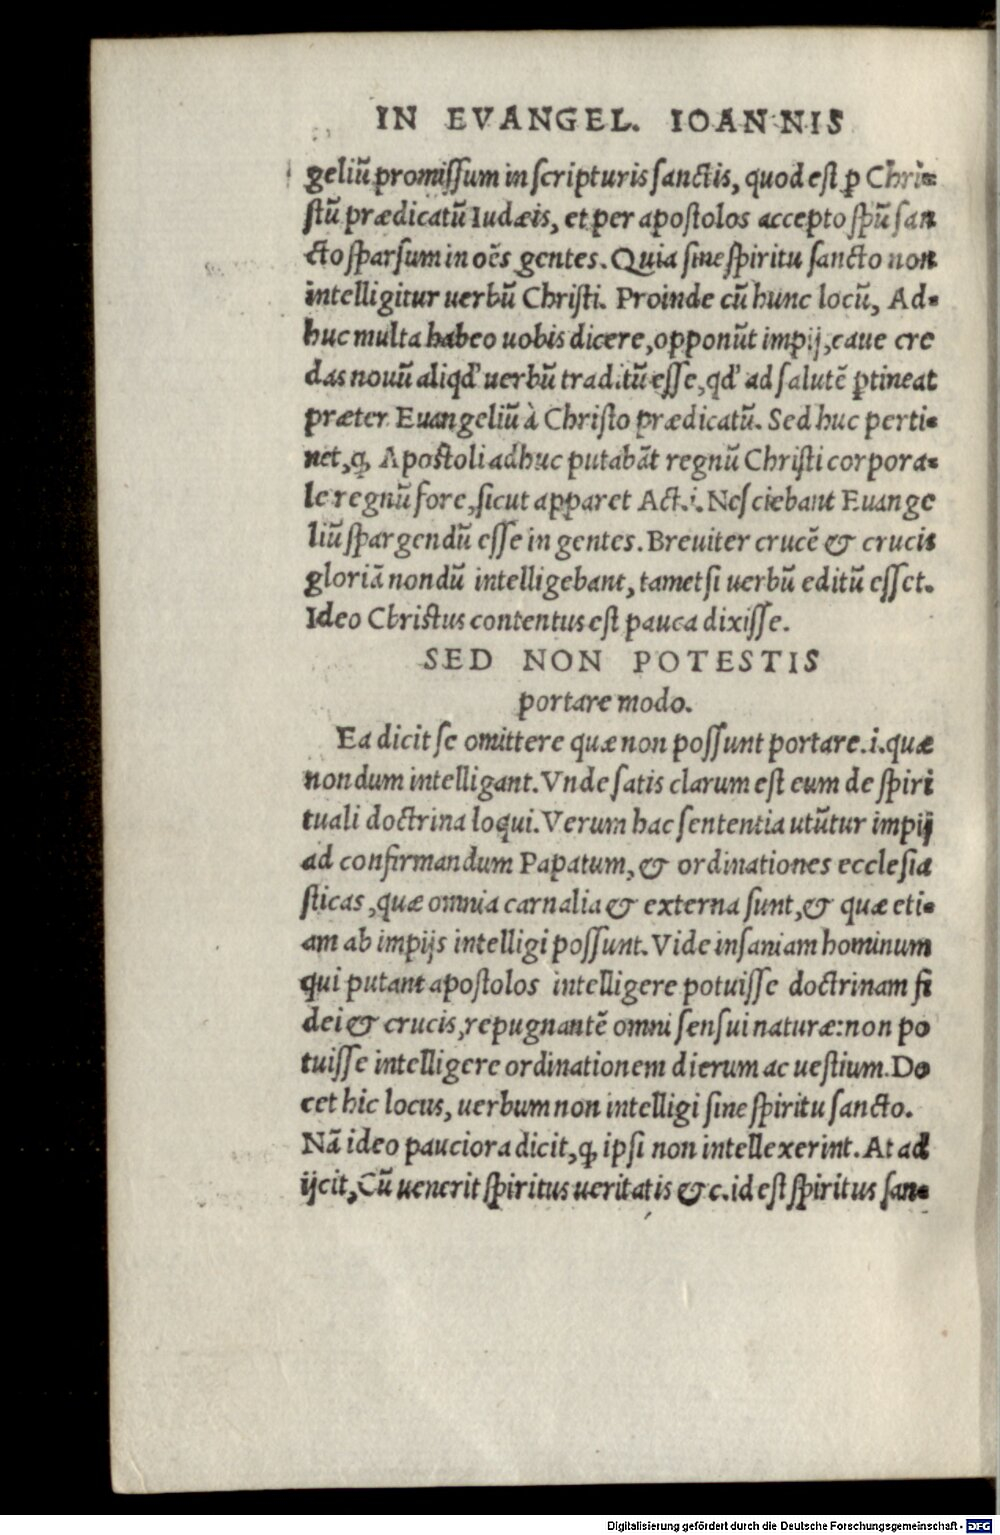 IN EVANGEL. IOANNIS
geliũ promissum in scripturis sanctis, quod est ꝑ Chri-
stũ prædicatũ Iudæis, et per apostolos accepto spũ san
cto sparsum in oẽs gentes. Quia sine spiritu sancto non
intelligitur uerbũ Christi. Proinde cũ hunc locũ, Ad-
huc multa habeo uobis dicere, opponũt impij, caue cre
das nouũ aliqd' uerbũ traditũ esse, qd' ad salutẽ ꝑtineat
præter Euangeliũ à Christo prædicatũ. Sed huc perti-
net, ꝙ Apostoli adhuc putabãt regnũ Christi corpora-
le regnũ fore, sicut apparet Act.i. Nesciebant Euange
liũ spargendũ esse in gentes. Breuiter crucẽ & crucis
gloriã nondũ intelligebant, tametsi uerbũ editũ esset.
Ideo Christus contentus est pauca dixisse.
SED NON POTESTIS
portare modo.
Ea dicit se omittere quæ non possunt portare.i.quæ
nondum intelligant. Vnde satis clarum est eum de spiri
tuali doctrina loqui. Verum hac sententia utũtur impij
ad confirmandum Papatum, & ordinationes ecclesia
sticas, quæ omnia carnalia & externa sunt, & quæ eti-
am ab impijs intelligi possunt. Vide insaniam hominum
qui putant apostolos intelligere potuisse doctrinam fi
dei & crucis, repugnantẽ omni sensui naturæ: non po
tuisse intelligere ordinationem dierum ac uestium. Do
cet hic locus, uerbum non intelligi sine spiritu sancto.
Nã ideo pauciora dicit, ꝙ ipsi non intellexerint. At ad
ijcit, Cũ uenerit spiritus ueritatis &c. id est spiritus san-
Digitalisierung gefördert durch die Deutsche Forschungsgemeinschaft - DFG